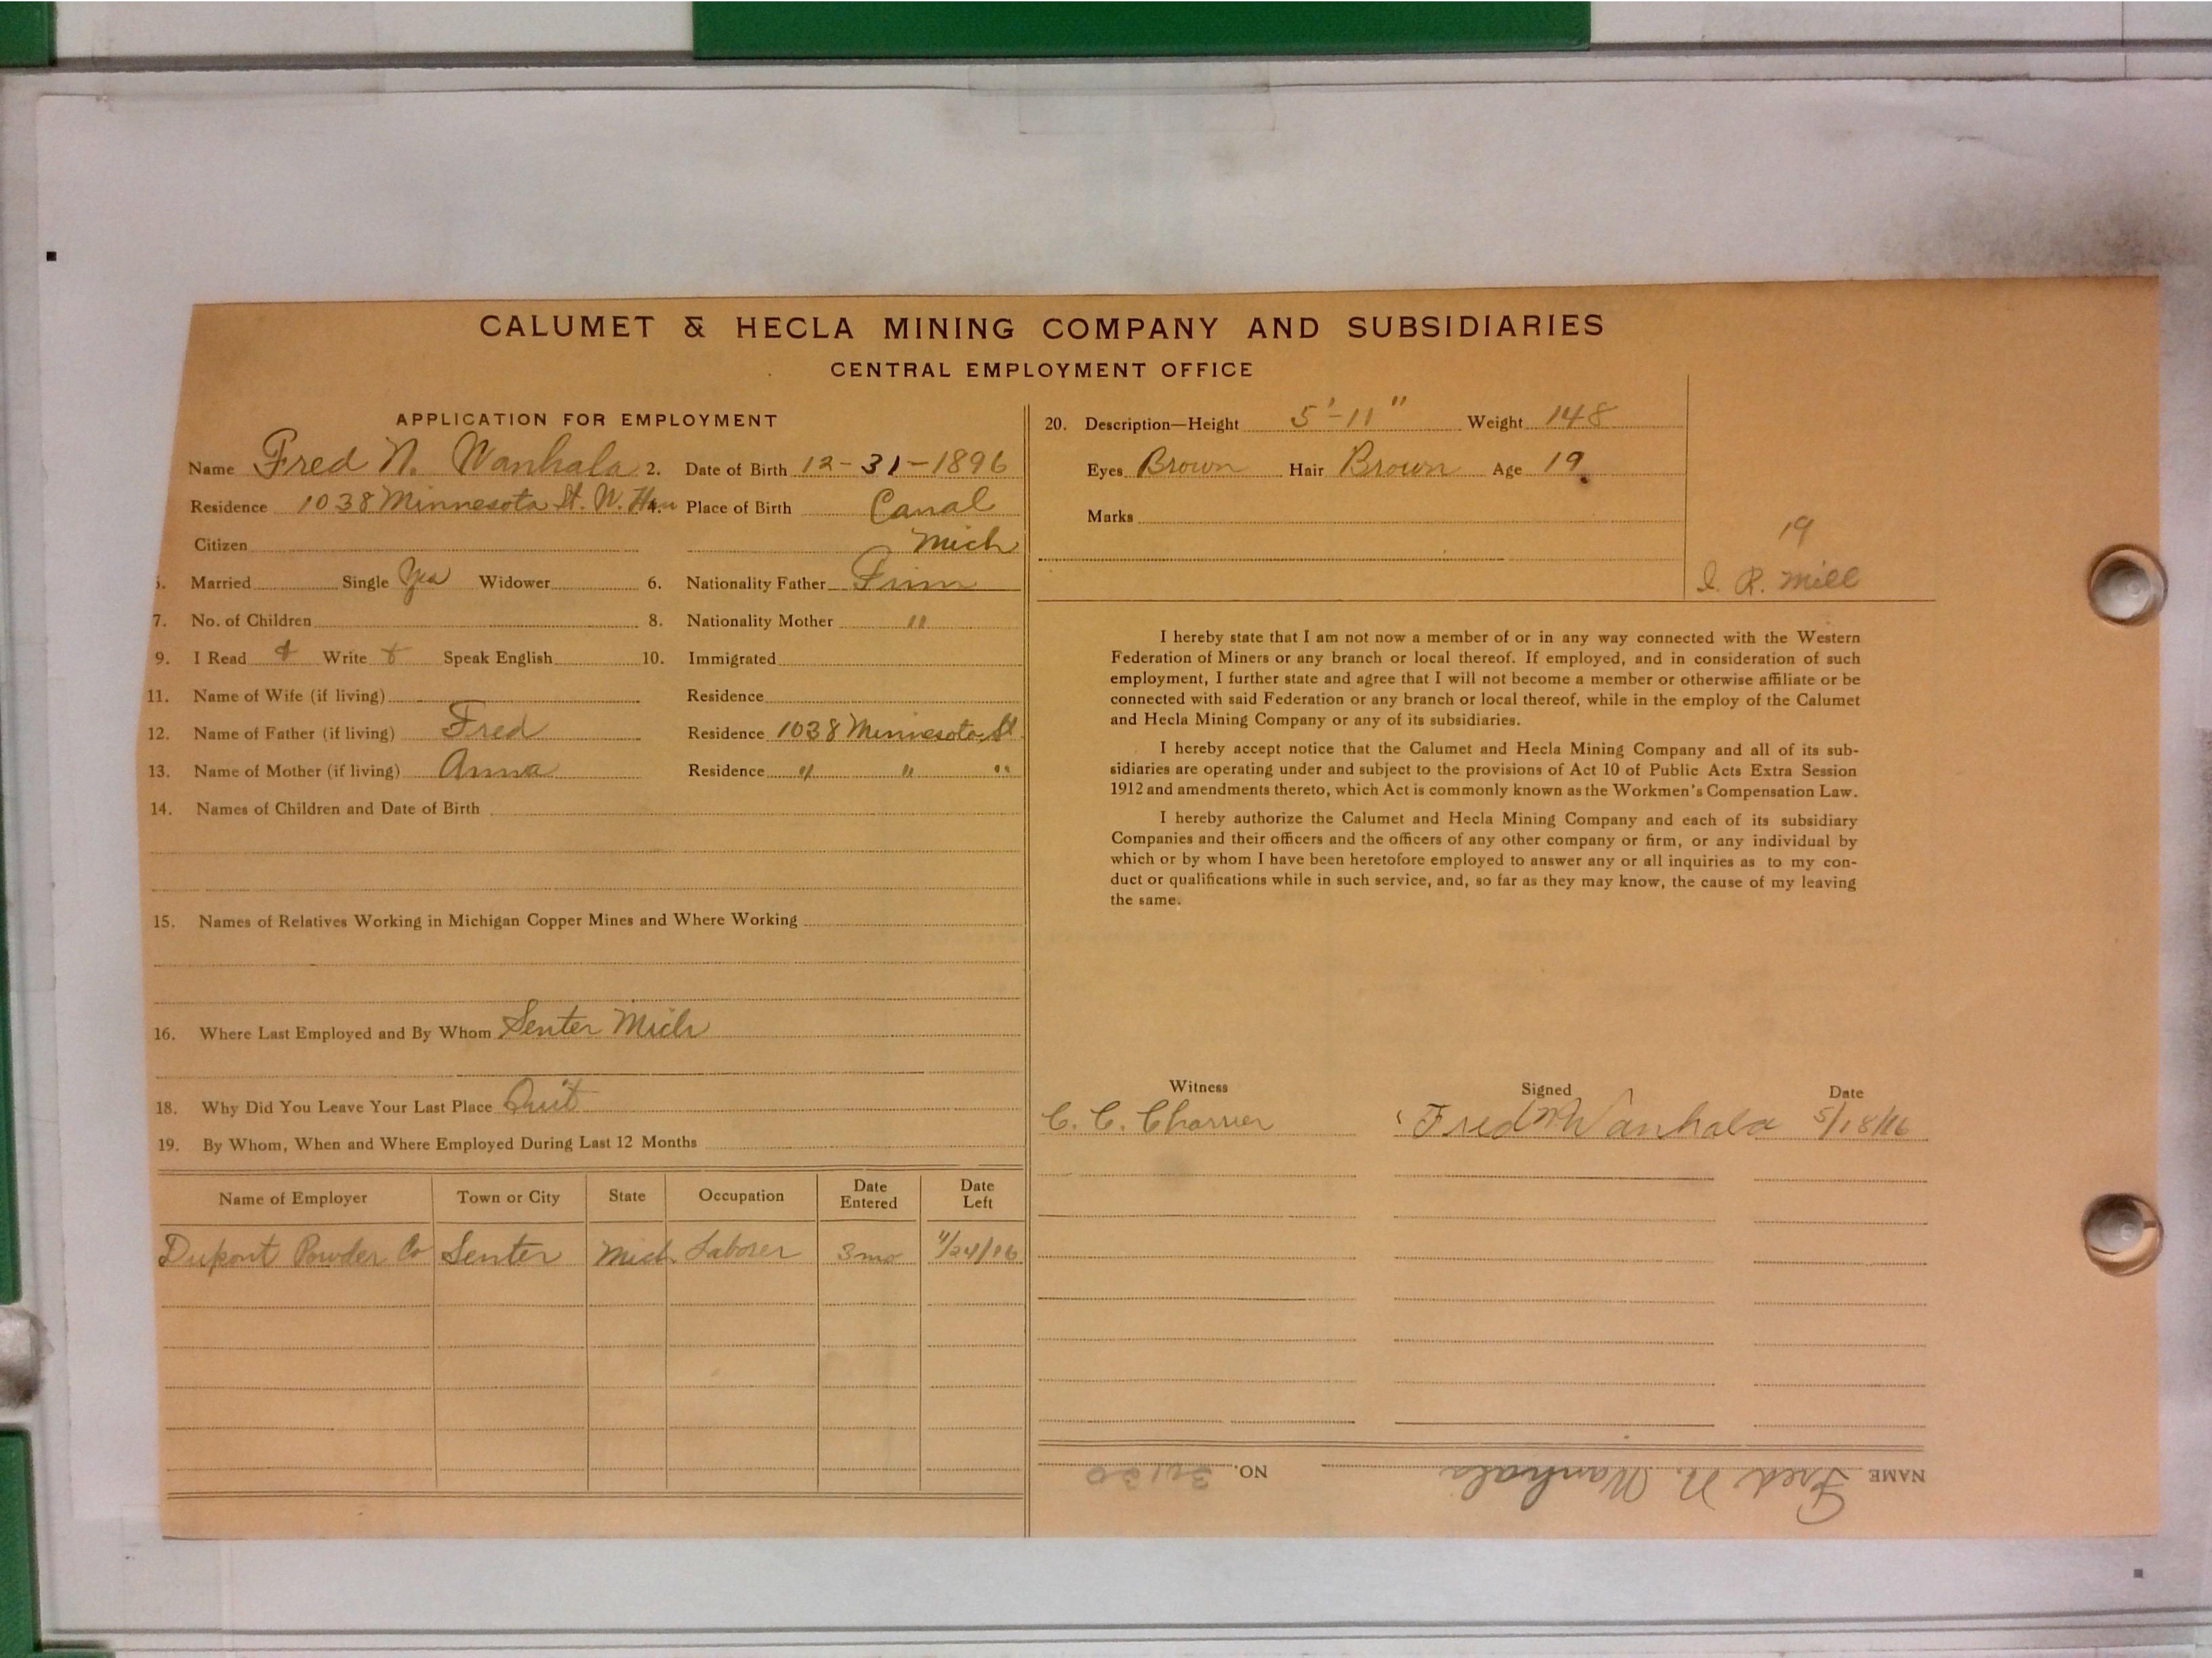 CALUMET & HECLA MINING COMPANY AND SUBSIDIARIES
CENTRAL EMPLOYMENT OFFICE
APPLICATION FOR EMPLOYMENT
Name Fred N. Wanhala 2. Date of Birth 12-31-1896
Residence 1038 Minnesota St. W. Han 4. Place of Birth Canal
Citizen Mich
5. Married Single Yea Widower 6. Nationality Father Finn
7. No. of Children 8. Nationality Mother "
9. I Read & Write & Speak English 10. Immigrated
11. Name of Wife (if living) Residence
12. Name of Father (if living) Fred Residence 1038 Minnesota St
13. Name of Mother (if living) Anna Residence " " "
14. Names of Children and Date of Birth
15. Names of Relatives Working in Michigan Copper Mines and Where Working
16. Where Last Employed and By Whom Senter Mich
18. Why Did You Leave Your Last Place Quit
19. By Whom, When and Where Employed During Last 12 Months
Name of Employer Town or City State Occupation Date Entered Date Left
Dupont Powder Co Senter Mich Laborer 3 mo 4/24/16
20. Description—Height 5'-11" Weight 148
Eyes Brown Hair Brown Age 19
Marks
19
I. R. Mill
I hereby state that I am not now a member of or in any way connected with the Western
Federation of Miners or any branch or local thereof. If employed, and in consideration of such
employment, I further state and agree that I will not become a member or otherwise affiliate or be
connected with said Federation or any branch or local thereof, while in the employ of the Calumet
and Hecla Mining Company or any of its subsidiaries.
I hereby accept notice that the Calumet and Hecla Mining Company and all of its sub-
sidiaries are operating under and subject to the provisions of Act 10 of Public Acts Extra Session
1912 and amendments thereto, which Act is commonly known as the Workmen's Compensation Law.
I hereby authorize the Calumet and Hecla Mining Company and each of its subsidiary
Companies and their officers and the officers of any other company or firm, or any individual by
which or by whom I have been heretofore employed to answer any or all inquiries as to my con-
duct or qualifications while in such service, and, so far as they may know, the cause of my leaving
the same.
Witness Signed Date
C. C. Charrier Fred N Wanhala 5/18/16
NAME Fred N. Wanhala NO.